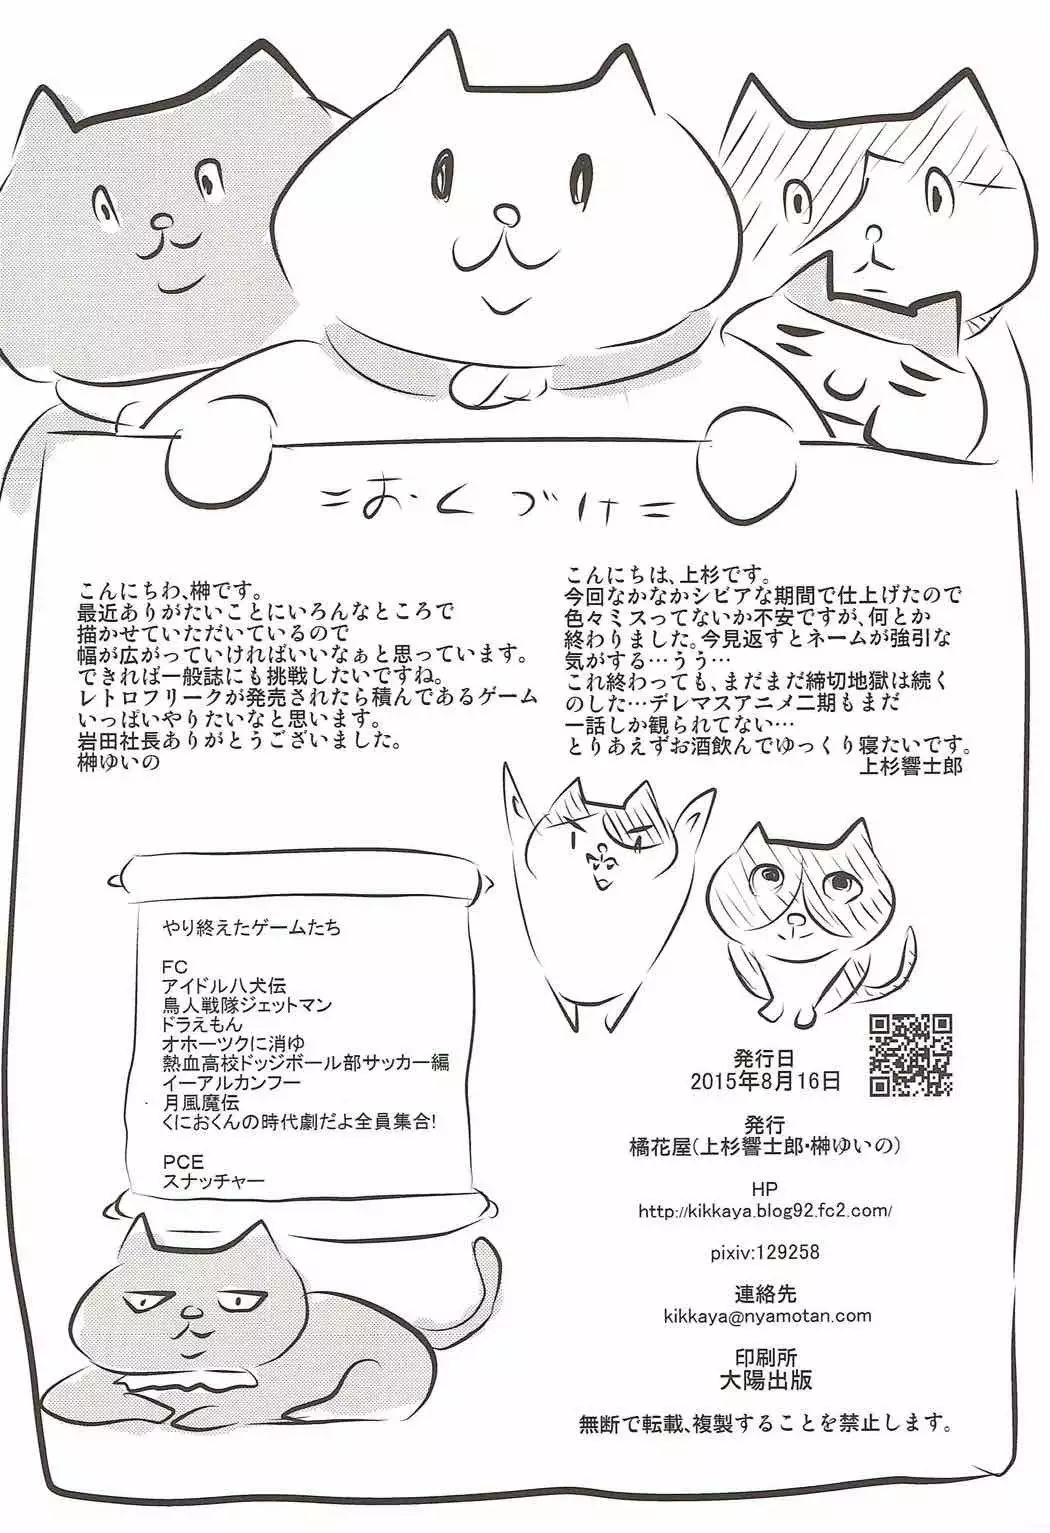 =おくづけ=
こんにちわ、榊です。
最近ありがたいことにいろんなところで
描かせていただいているので
幅が広がっていければいいなぁと思っています。
できれば一般誌にも挑戦したいですね。
レトロフリークが発売されたら積んであるゲーム
いっぱいやりたいなと思います。
岩田社長ありがとうございました。
榊ゆいの
こんにちは、上杉です。
今回なかなかシビアな期間で仕上げたので
色々ミスってないか不安ですが、何とか
終わりました。今見返すとネームが強引な
気がする…うう…
これ終わっても、まだまだ締切地獄は続く
のした…デレマスアニメ二期もまだ
一話しか観られてない…
とりあえずお酒飲んでゆっくり寝たいです。
上杉響士郎
やり終えたゲームたち
FC
アイドル八犬伝
鳥人戦隊ジェットマン
ドラえもん
オホーツクに消ゆ
熱血高校ドッジボール部サッカー編
イーアルカンフー
月風魔伝
くにおくんの時代劇だよ全員集合!
PCE
スナッチャー
発行日
2015年8月16日
発行
橘花屋(上杉響士郎・榊ゆいの)
HP
http://kikkaya.blog92.fc2.com/
pixiv:129258
連絡先
kikkaya@nyamotan.com
印刷所
大陽出版
無断で転載、複製することを禁止します。